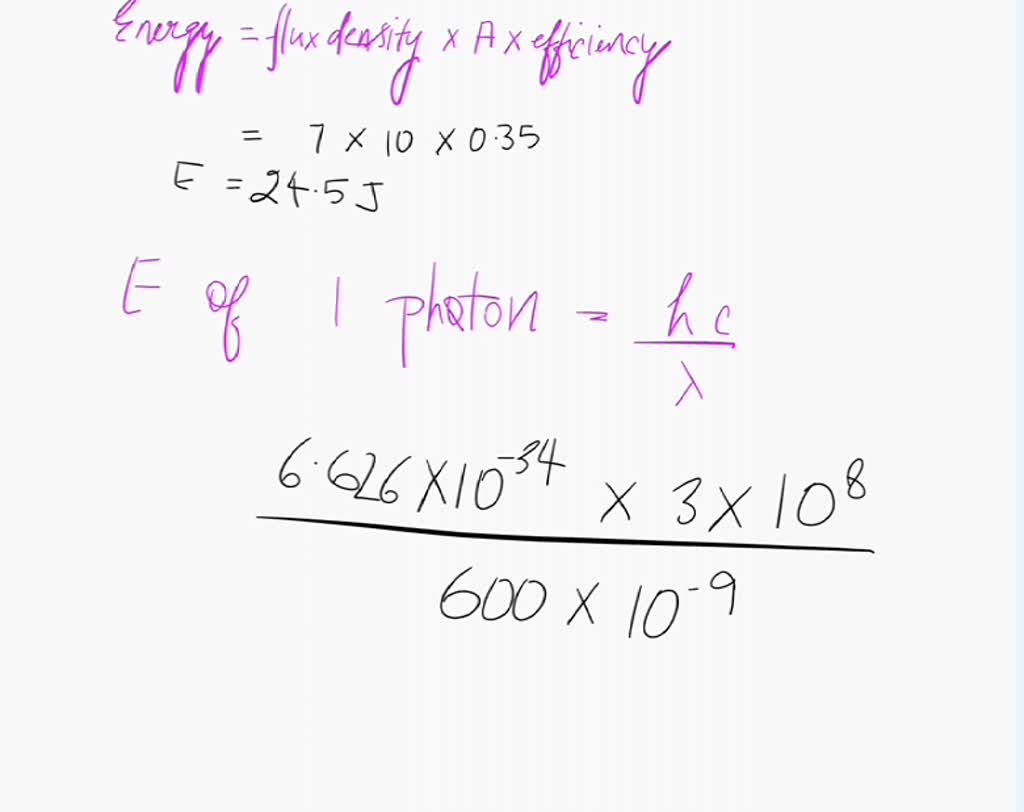 Energy = flux density x A x efficiency
= 7 x 10 x 0.35
E = 24.5 J
E of 1 photon = hc
λ
6.626 x 10⁻³⁴ x 3 x 10⁸
600 x 10⁻⁹